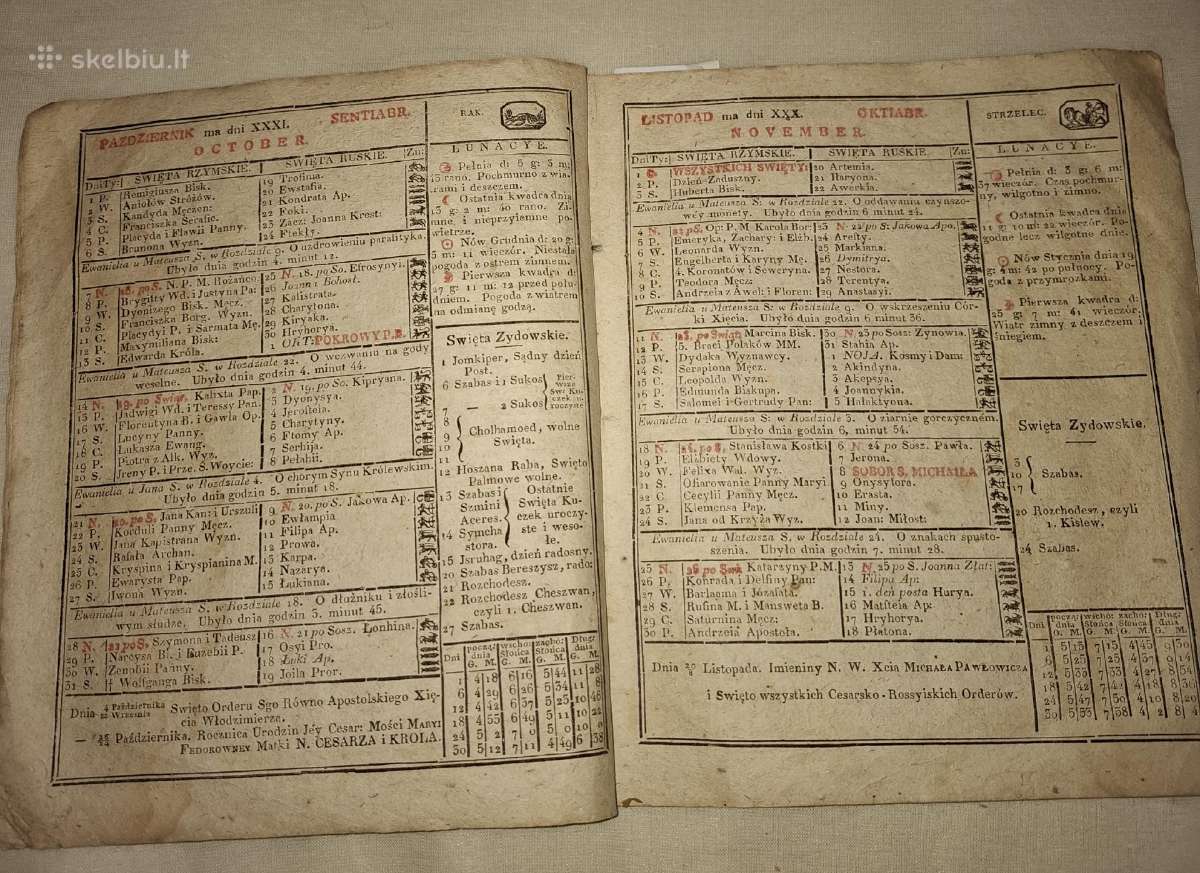 skelbiu.lt
PAZDZIERNIK ma dni XXXI. SENTIABR.
OCTOBER.
RAK.
Dni Ty: SWIĘTA RZYMSKIE. SWIĘTA RUSKIE. Zn:
1 P. Remigiusza Bisk. 19 Trofima.
2 W. Aniołów Strózów. 20 Ewstafia.
3 S. Kandyda Męczen: 21 Kondrata Ap.
4 C. Franciszka Serafic. 22 Foki.
5 P. Placyda i Flawii Panny. 23 Zacz: Joanna Krost:
6 S. Brunona Wyzn. 24 Fiekły.
Ewanielia u Mateusza S. w Rozdziale 9. O uzdrowieniu paralityka.
Ubyło dnia godzin 4. minut 12.
7 N. 18. po S. N. P. M. Rożańco. 25 N. 18. po So. Efrosynyi.
8 P. Brygitty Wd. i Justyna Pa: 26 Joann: Bohosł.
9 W. Dyonizego Bisk. Męcz. 27 Kalistrata.
10 S. Franciszka Borg. Wyzn. 28 Charytona.
11 C. Placydyi P. i Sarmata Mę. 29 Kiryaka.
12 P. Maxymiliana Bisk: 30 Hryhorya.
13 S. Edwarda Króla. 1 OKT: POKROWY P.B.
Ewanielia u Mateusza S. w Rozdziale 22. O wezwaniu na gody
weselne. Ubyło dnia godzin 4. minut 44.
14 N. 19. po Swiąt. Kalixta Pap. 2 N. 19. po So. Kipryana.
15 P. Jadwigi Wd. i Teressy Pan. 3 Dyonysya.
16 W. Florentyna B. i Gawła Op. 4 Jeroſteia.
17 S. Lucyny Panny. 5 Charytyny.
18 C. Łukasza Ewang. 6 Ftomy Ap.
19 P. Piotra z Alk. Wyz. 7 Serhija.
20 S. Jreny P. i Prze. S. Woycie: 8 Pełahii.
Ewanielia u Jana S. w Rozdziale 4. O chorym Synu Królewskim.
Ubyło dnia godzin 5. minut 18.
21 N. 20. po S. Jana Kan: i Urszuli 9 N. 20. po S. Jakowa Ap.
22 P. Korduli Panny Męcz. 10 Ewłampia
23 W. Jana Kapistrana Wyzn. 11 Filipa Ap.
24 S. Rafała Archan. 12 Prowa.
25 C. Kryspina i Kryspinianа M. 13 Karpa.
26 P. Ewarysta Pap. 14 Nazerya.
27 S. Iwona Wyzn. 15 Łukiana.
Ewanielia u Mateusza S. w Rozdziale 18. O dłużniku i złośli-
wym słudze. Ubyło dnia godzin 5. minut 45.
28 N. 21 po S. Szymona i Tadeusz 16 N. 21 po Sosz. Łonhina.
29 P. Narcyza B. i Euzebii P. 17 Osyi Pro.
30 W. Zenobii Panny. 18 Łuki Ap.
31 S. Wolfganga Bisk. 19 Joiła Pror.
Dnia 4 Października Swięto Orderu Sgo Równo Apostolskiego Xię-
cia Włodzimierza.
— Października. Rocznica Urodzin Jéy Cesar: Mości MARYI
FEDOROWNEY Matki N. CESARZA i KROLA.
LUNACYE.
Pełnia d: 5 g: 3 m:
15 rano. Pochmurno z wia-
trami i deszczem.
Ostatnia kwadra dnia
13 g: 2 m: 40 rano. Zi-
mne, i nieprzyiemne po-
wietrze.
Nów Grudnia d: 20 g:
5 m: 11 wieczór. Niestała
pogoda z ostrem zimnem.
Pierwsza kwadra d:
27 g: 11 m: 12 przed połu-
dniem. Pogoda z wiatrem
na odmianę godzą.
Swięta Zydowskie.
1 Jomkiper, Sądny dzień
Post.
6 Szabas i 1 Sukos Pier-wsze Swi Ku-czek u-roczyste
7 — 2 Sukos
8
9 Cholhamoed, wolne
10 Swięta.
11 Hoszana Raba, Swięto
12 Palmowe wolne.
13 Szabas i Szmini Aceres. Ostatnie Swięta Ku-czek uroczy-ste i weso-łe.
14 Symcha stora.
15 Jsruhag, dzień radosny.
20 Szabas Bereszysz, rado:
21 Rozchodesz.
22 Rozchodesz Cheszwan,
czyli 1. Cheszwan.
27 Szabas.
Dni począ: dnia G. M. wscho: Słońca G. M. zachó: Słońca G. M. Długi: dnia G. M.
1 4 18 6 16 5 44 11 28
6 4 29 6 26 5 34 11 8
12 4 42 6 37 5 23 10 46
18 4 55 6 49 5 11 10 22
24 5 2 7 0 5 0 10 0
30 5 12 7 11 4 49 6 38
LISTOPAD ma dni XXX. OKTIABR.
NOVEMBER.
STRZELEC.
Dni Ty: SWIĘTA RZYMSKIE. SWIĘTA RUSKIE. Zn:
1 C. WSZYSTKICH SWIĘTY: 20 Artemia.
2 P. Dzień Zaduszny. 21 Iłaryona.
3 S. Huberta Bisk. 22 Awerkia.
Ewanielia u Mateusza S: w Rozdziale 22. O oddawaniu czynszo-
wéy monety. Ubyło dnia godzin 6 minut 24.
4 N. 22 po S. Op: P. M Karola Bor: 23 N. 22 po S: Jakowa Apo.
5 P. Emeryka, Zachary: i Elżb. 24 Arefty.
6 W. Leonarda Wyzn. 25 Markiana.
7 S. Engelberta i Karyny Mę. 26 Dymitrya.
8 C. 4. Koronatów i Seweryna. 27 Nestora.
9 P. Teodora Męcz: 28 Terentya.
10 S. Andrzeia z Awel: i Floren: 29 Anastasyi.
Ewanielia u Mateusza S: w Rozdziale 9. O wskrzeszeniu Cór-
ki Xięcia. Ubyło dnia godzin 6 minut 36.
11 N. 23. po Świąt: Marcina Bisk. 30 N. 23 po Sosz: Zynowia.
12 P. 5. Braci Polaków MM. 31 Stahia Ap.
13 W. Dydaka Wyznawcy. 1 NOJA. Kosmy i Dam:
14 S. Serapiona Męcz. 2 Akindyna.
15 C. Leopolda Wyzn. 3 Akepsya.
16 P. Edmunda Biskupa. 4 Joannykia.
17 S. Salomei i Gertrudy Pan: 5 Hałaktyona.
Ewanielia u Mateusza S: w Rozdziale 3. O ziarnie gorczycznem.
Ubyło dnia godzin 6, minut 54.
18 N. 24. po S. Stanisława Kostki 6 N. 24 po Sosz. Pawła.
19 P. Elżbiety Wdowy. 7 Jerona.
20 W. Felixa Wal. Wyz. 8 SOBOR S. MICHAIŁA
21 S. Ofiarowanie Panny Maryi 9 Onysytora.
22 C. Cecylii Panny Męcz. 10 Erasta.
23 P. Klemensa Pap. 11 Miny.
24 S. Jana od Krzyża Wyz. 12 Joan: Miłost:
Ewanielia u Mateusza S. w Rozdziale 24. O znakach spusto-
szenia. Ubyło dnia godzin 7. minut 28.
25 N. 25 po Świą Katarzyny P.M. 13 N. 25 po S. Joanna Złat:
26 P. Konrada i Delfiny Pan: 14 Filipa Ap:
27 W: Barlaama i Józafata. 15 1. deń posta Hurya.
28 S. Rufina M. i Mansweta B. 16 Matfteia Ap:
29 C. Saturnina Męcz: 17 Hryhorya.
30 P. Andrzeia Apostoła. 18 Płatona.
Dnia 20/8 Listopada. Imieniny N. W. Xcia MICHAŁA PAWŁOWICZA
i Swięto wszystkich Cesarsko-Rossyiskich Orderów.
LUNACYE.
Pełnia d: 3 g: 6 m:
37 wieczór. Czas pochmur-
ny, wilgotno i zimno.
Ostatnia kwadra dnia
11 g: 10 m: 22 wieczór. Po-
godne lecz wilgotne dnie.
Nów Stycznia dnia 19
g: 4 m: 42 po północy. Po-
goda z przymrozkami.
Pierwsza kwadra d:
25 g: 7 m: 41 wieczór,
Wiatr zimny z deszczem i
śniegiem.
Swięta Zydowskie.
3
10 Szabas.
17
20 Rozchodesz, czyli
1. Kislew.
24 Szabas.
Dni począ: dnia G. M. wscho: Słońca G. M. zachó: Słońca G. M. Długi: dnia G. M.
1 5 15 7 15 4 45 9 30